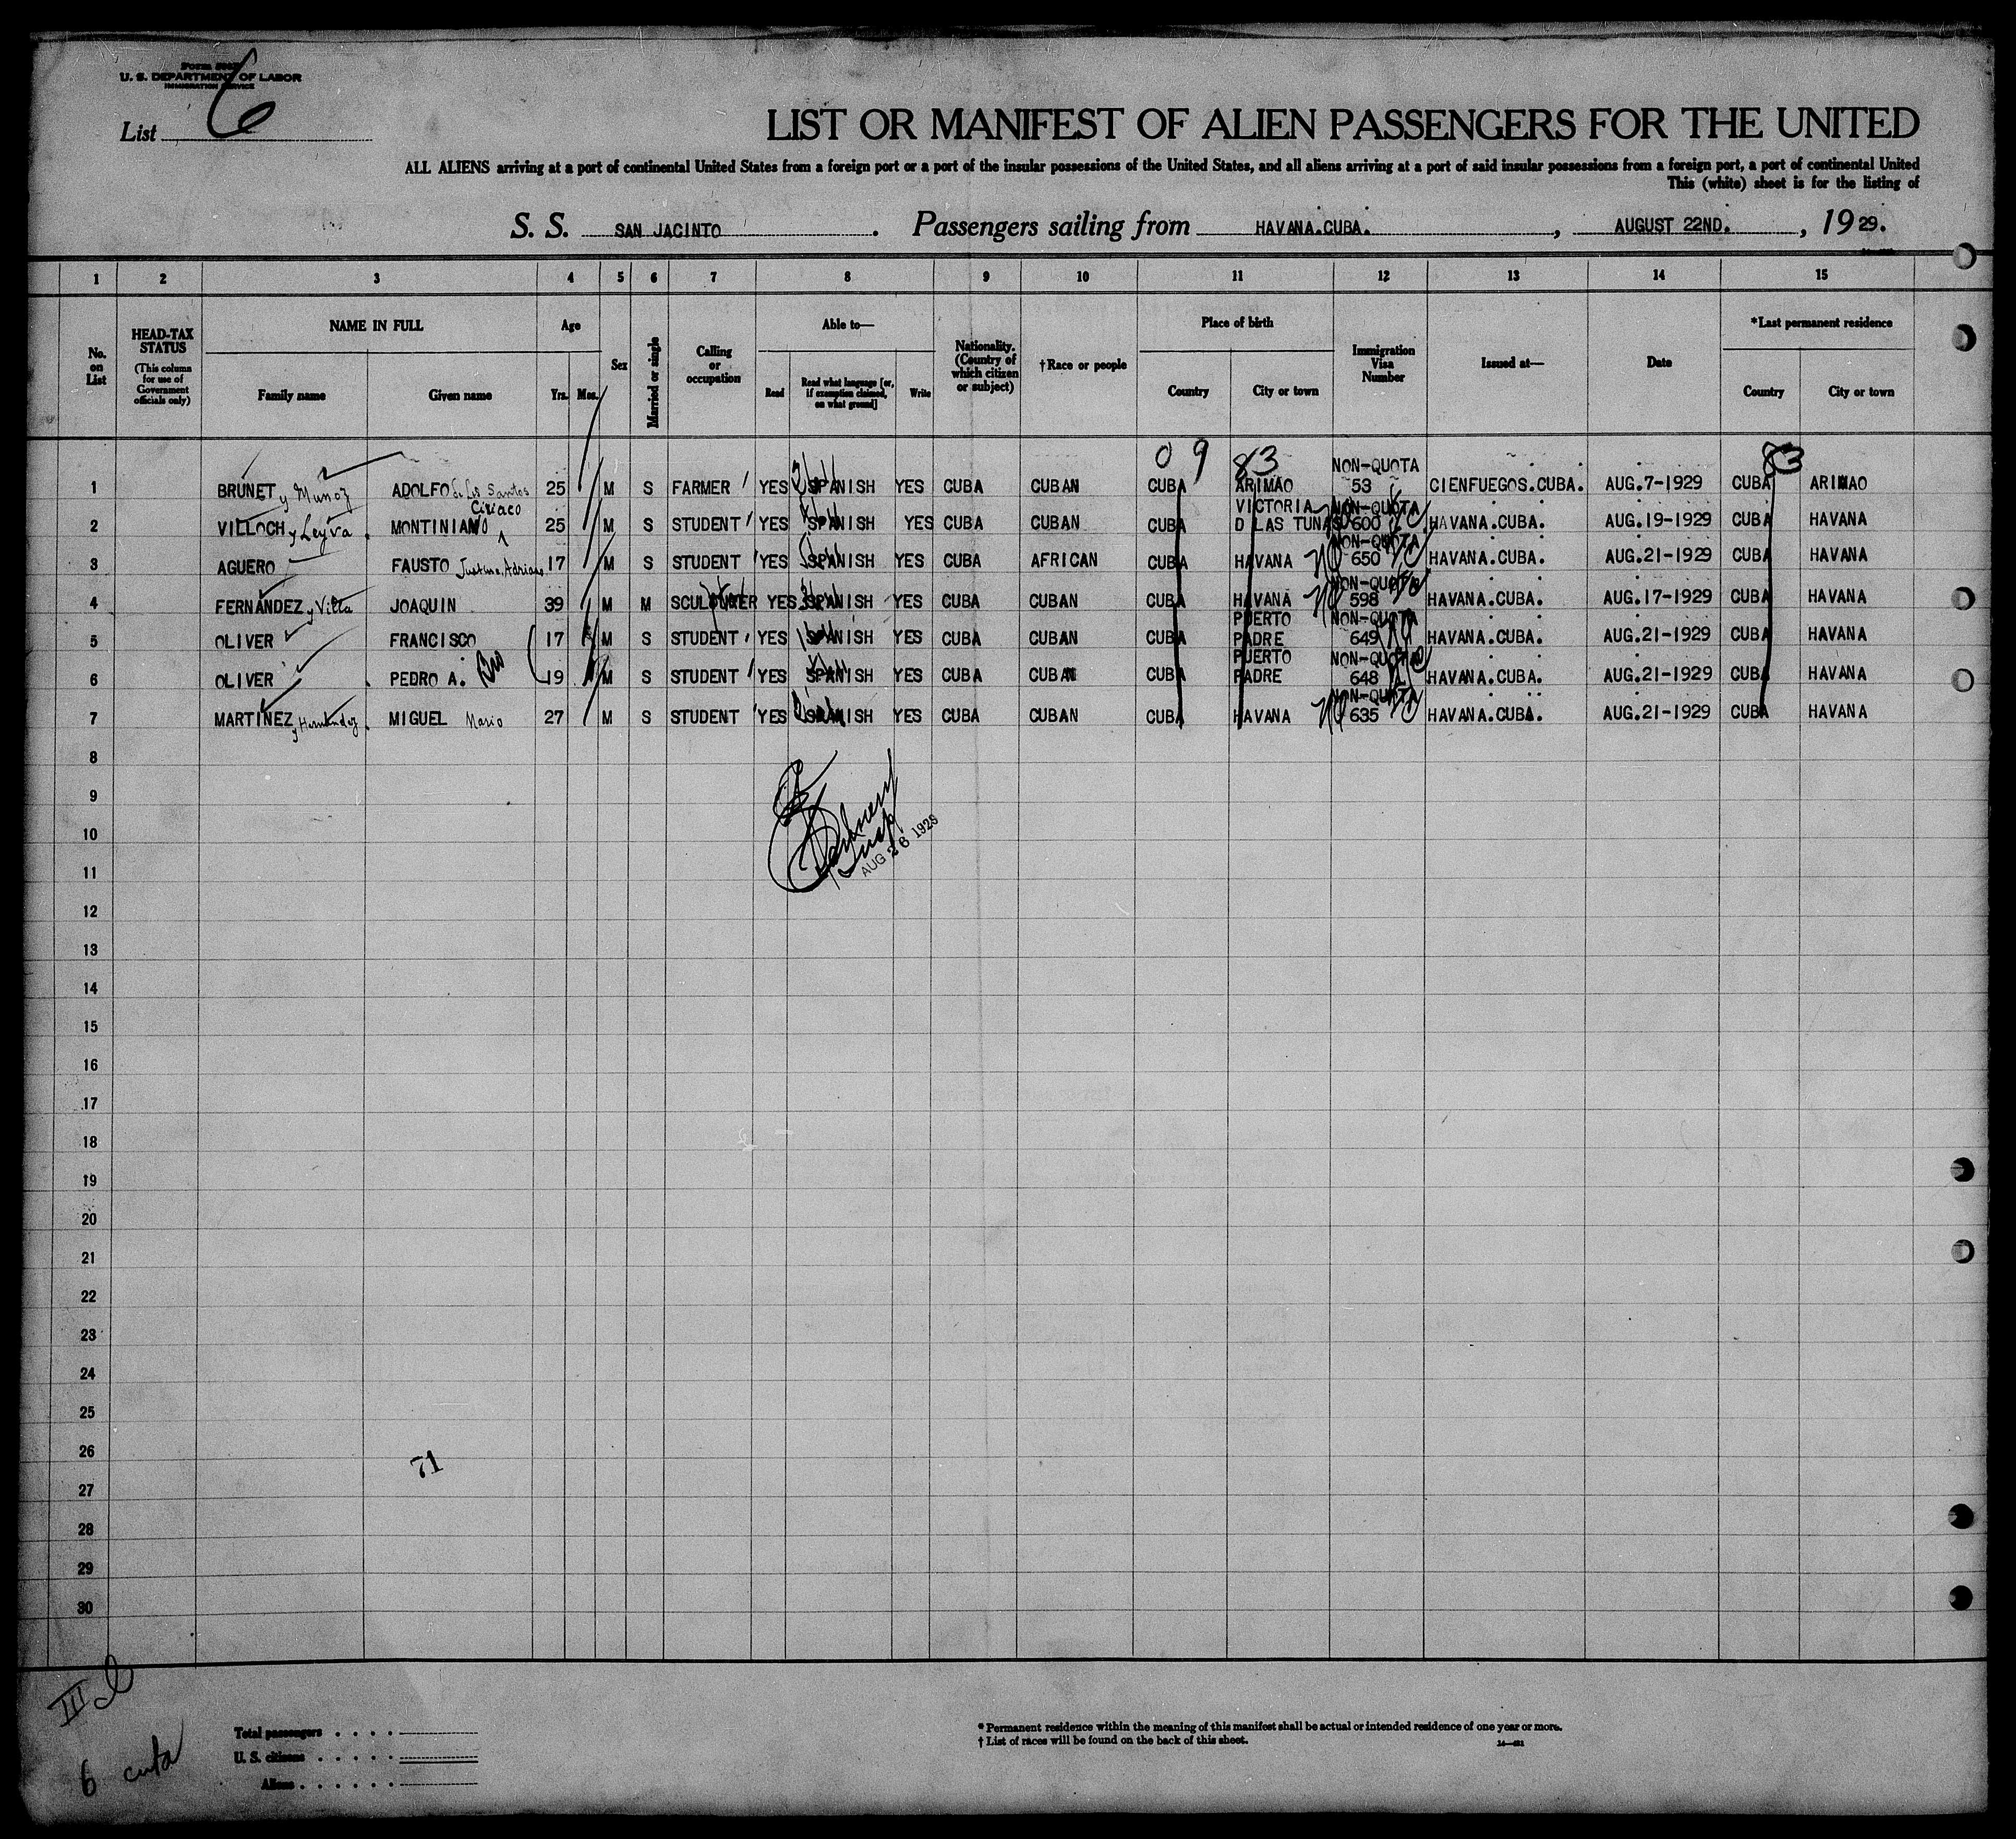 U. S. DEPARTMENT OF LABOR
IMMIGRATION SERVICE
List 6
LIST OR MANIFEST OF ALIEN PASSENGERS FOR THE UNITED
ALL ALIENS arriving at a port of continental United States from a foreign port or a port of the insular possessions of the United States, and all aliens arriving at a port of said insular possessions from a foreign port, a port of continental United
This (white) sheet is for the listing of
S. S. SAN JACINTO. Passengers sailing from HAVANA.CUBA., AUGUST 22ND., 19 29.
1 2 3 4 5 6 7 8 9 10 11 12 13 14 15
No. on List
HEAD-TAX STATUS (This column for use of Government officials only)
NAME IN FULL Family name Given name
Age Yrs. Mos.
Sex
Married or single
Calling or occupation
Able to— Read Read what language [or, if exemption claimed, on what ground] Write
Nationality. (Country of which citizen or subject)
†Race or people
Place of birth Country City or town
Immigration Visa Number
Issued at—
Date
*Last permanent residence Country City or town
09 83 83
1 BRUNET y Munoz ADOLFO de los Santos 25 M S FARMER YES SPANISH YES CUBA CUBAN CUBA ARIMAO NON-QUOTA 53 CIENFUEGOS.CUBA. AUG.7-1929 CUBA ARIMAO
2 VILLOCH y Leyva. MONTINIANO Ciriaco 25 M S STUDENT YES SPANISH YES CUBA CUBAN CUBA VICTORIA D LAS TUNAS NON-QUOTA 600 HAVANA.CUBA. AUG.19-1929 CUBA HAVANA
3 AGUERO FAUSTO Adriano 17 M S STUDENT YES SPANISH YES CUBA AFRICAN CUBA HAVANA NON-QUOTA 650 HAVANA.CUBA. AUG.21-1929 CUBA HAVANA
4 FERNANDEZ y Villa JOAQUIN 39 M M SCULPTURER YES SPANISH YES CUBA CUBAN CUBA HAVANA NON-QUOTA 598 HAVANA.CUBA. AUG.17-1929 CUBA HAVANA
5 OLIVER FRANCISCO 17 M S STUDENT YES SPANISH YES CUBA CUBAN CUBA PUERTO PADRE NON-QUOTA 649 HAVANA.CUBA. AUG.21-1929 CUBA HAVANA
6 OLIVER . PEDRO A. Bro 19 M S STUDENT YES SPANISH YES CUBA CUBAN CUBA PUERTO PADRE NON-QUOTA 648 HAVANA.CUBA. AUG.21-1929 CUBA HAVANA
7 MARTINEZ y Hernandez. MIGUEL Mario 27 M S STUDENT YES SPANISH YES CUBA CUBAN CUBA HAVANA NON-QUOTA 635 HAVANA.CUBA. AUG.21-1929 CUBA HAVANA
8
9
10
AUG 26 1928
11
12
13
14
15
16
17
18
19
20
21
22
23
24
25
26
71
27
28
29
30
III
6 cuba
Total passengers
U. S. citizens
Aliens
* Permanent residence within the meaning of this manifest shall be actual or intended residence of one year or more.
† List of races will be found on the back of this sheet.